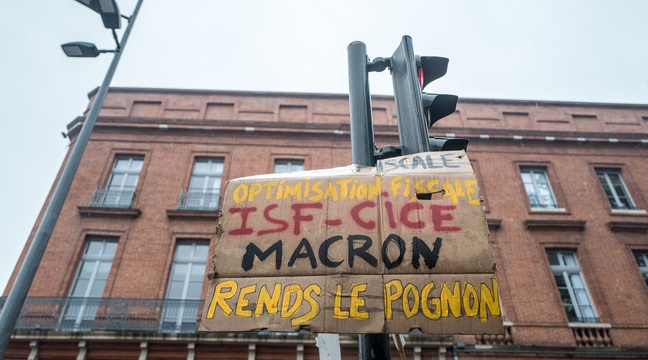 ISCALE
OPTIMISATION FISCALE
ISF-CICE
MACRON
RENDS LE POGNON